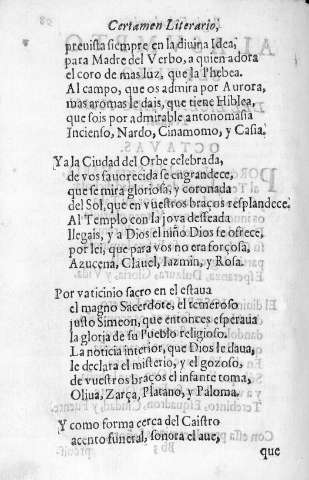 Certamen Literario,
prevista siempre en la divina Idea,
para Madre del Verbo, a quien adora
el coro de mas luz, que la Phebea.
Al campo, que os admira por Aurora,
mas aromas le dais, que tiene Hiblea,
que sois por admirable antonomasia
Incienso, Nardo, Cinamomo, y Casia.
Ya la Ciudad del Orbe celebrada,
de vos fauorecida se engrandece,
que se mira gloriosa, y coronada
del Sol, que en vuestros braços resplandece.
Al Templo con la joya desseada
llegais, y a Dios el niño Dios se ofrece,
por lei, que para vos no era forçosa,
Azuçena, Clauel, Iazmin, y Rosa.
Por vaticinio sacro en el estaua
el magno Sacerdote, el temeroso
justo Simeon, que entonces esperaua
la gloria de su Pueblo religioso.
La noticia interior, que Dios le daua,
le declara el misterio, y el gozoso,
de vuestros braços el infante toma,
Oliua, Zarça, Platano, y Paloma.
Y como forma cerca del Caistro
acento funeral, sonora el aue,
que